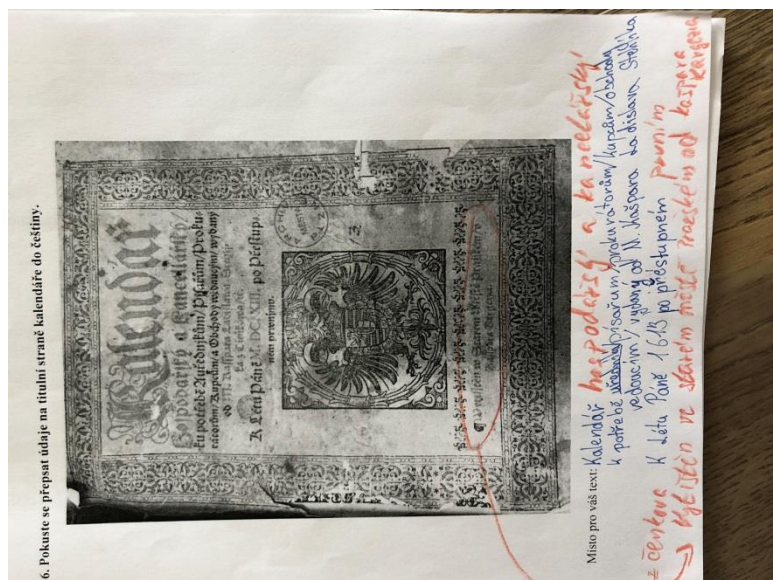 6. Pokuste se přepsat údaje na titulní straně kalendáře do češtiny.
Kalendář
Hospodařský a Kancelařský/
ku potřebě Auředníkům/ Pijsařům/ Proku-
rátorům/ Kupcům/ a Obchody wedaucým/ wydaný
od M. Kasspara Ladislawa
K Létu Páně M.DC.XIII. po Přestup-
ném prwnjmu.
13.
Místo pro váš text: Kalendář hospodářský a kancelářský
k potřebě písařům/prokurátorům/kupcům/obchody
vedoucím/ vydaný od M. Kašpara Ladislava Stehlíka
z Čenkova K Létu Páně 1613 po přestupném prvním
Vytištěn ve starém městě Pražském od Kašpara
Kargesia